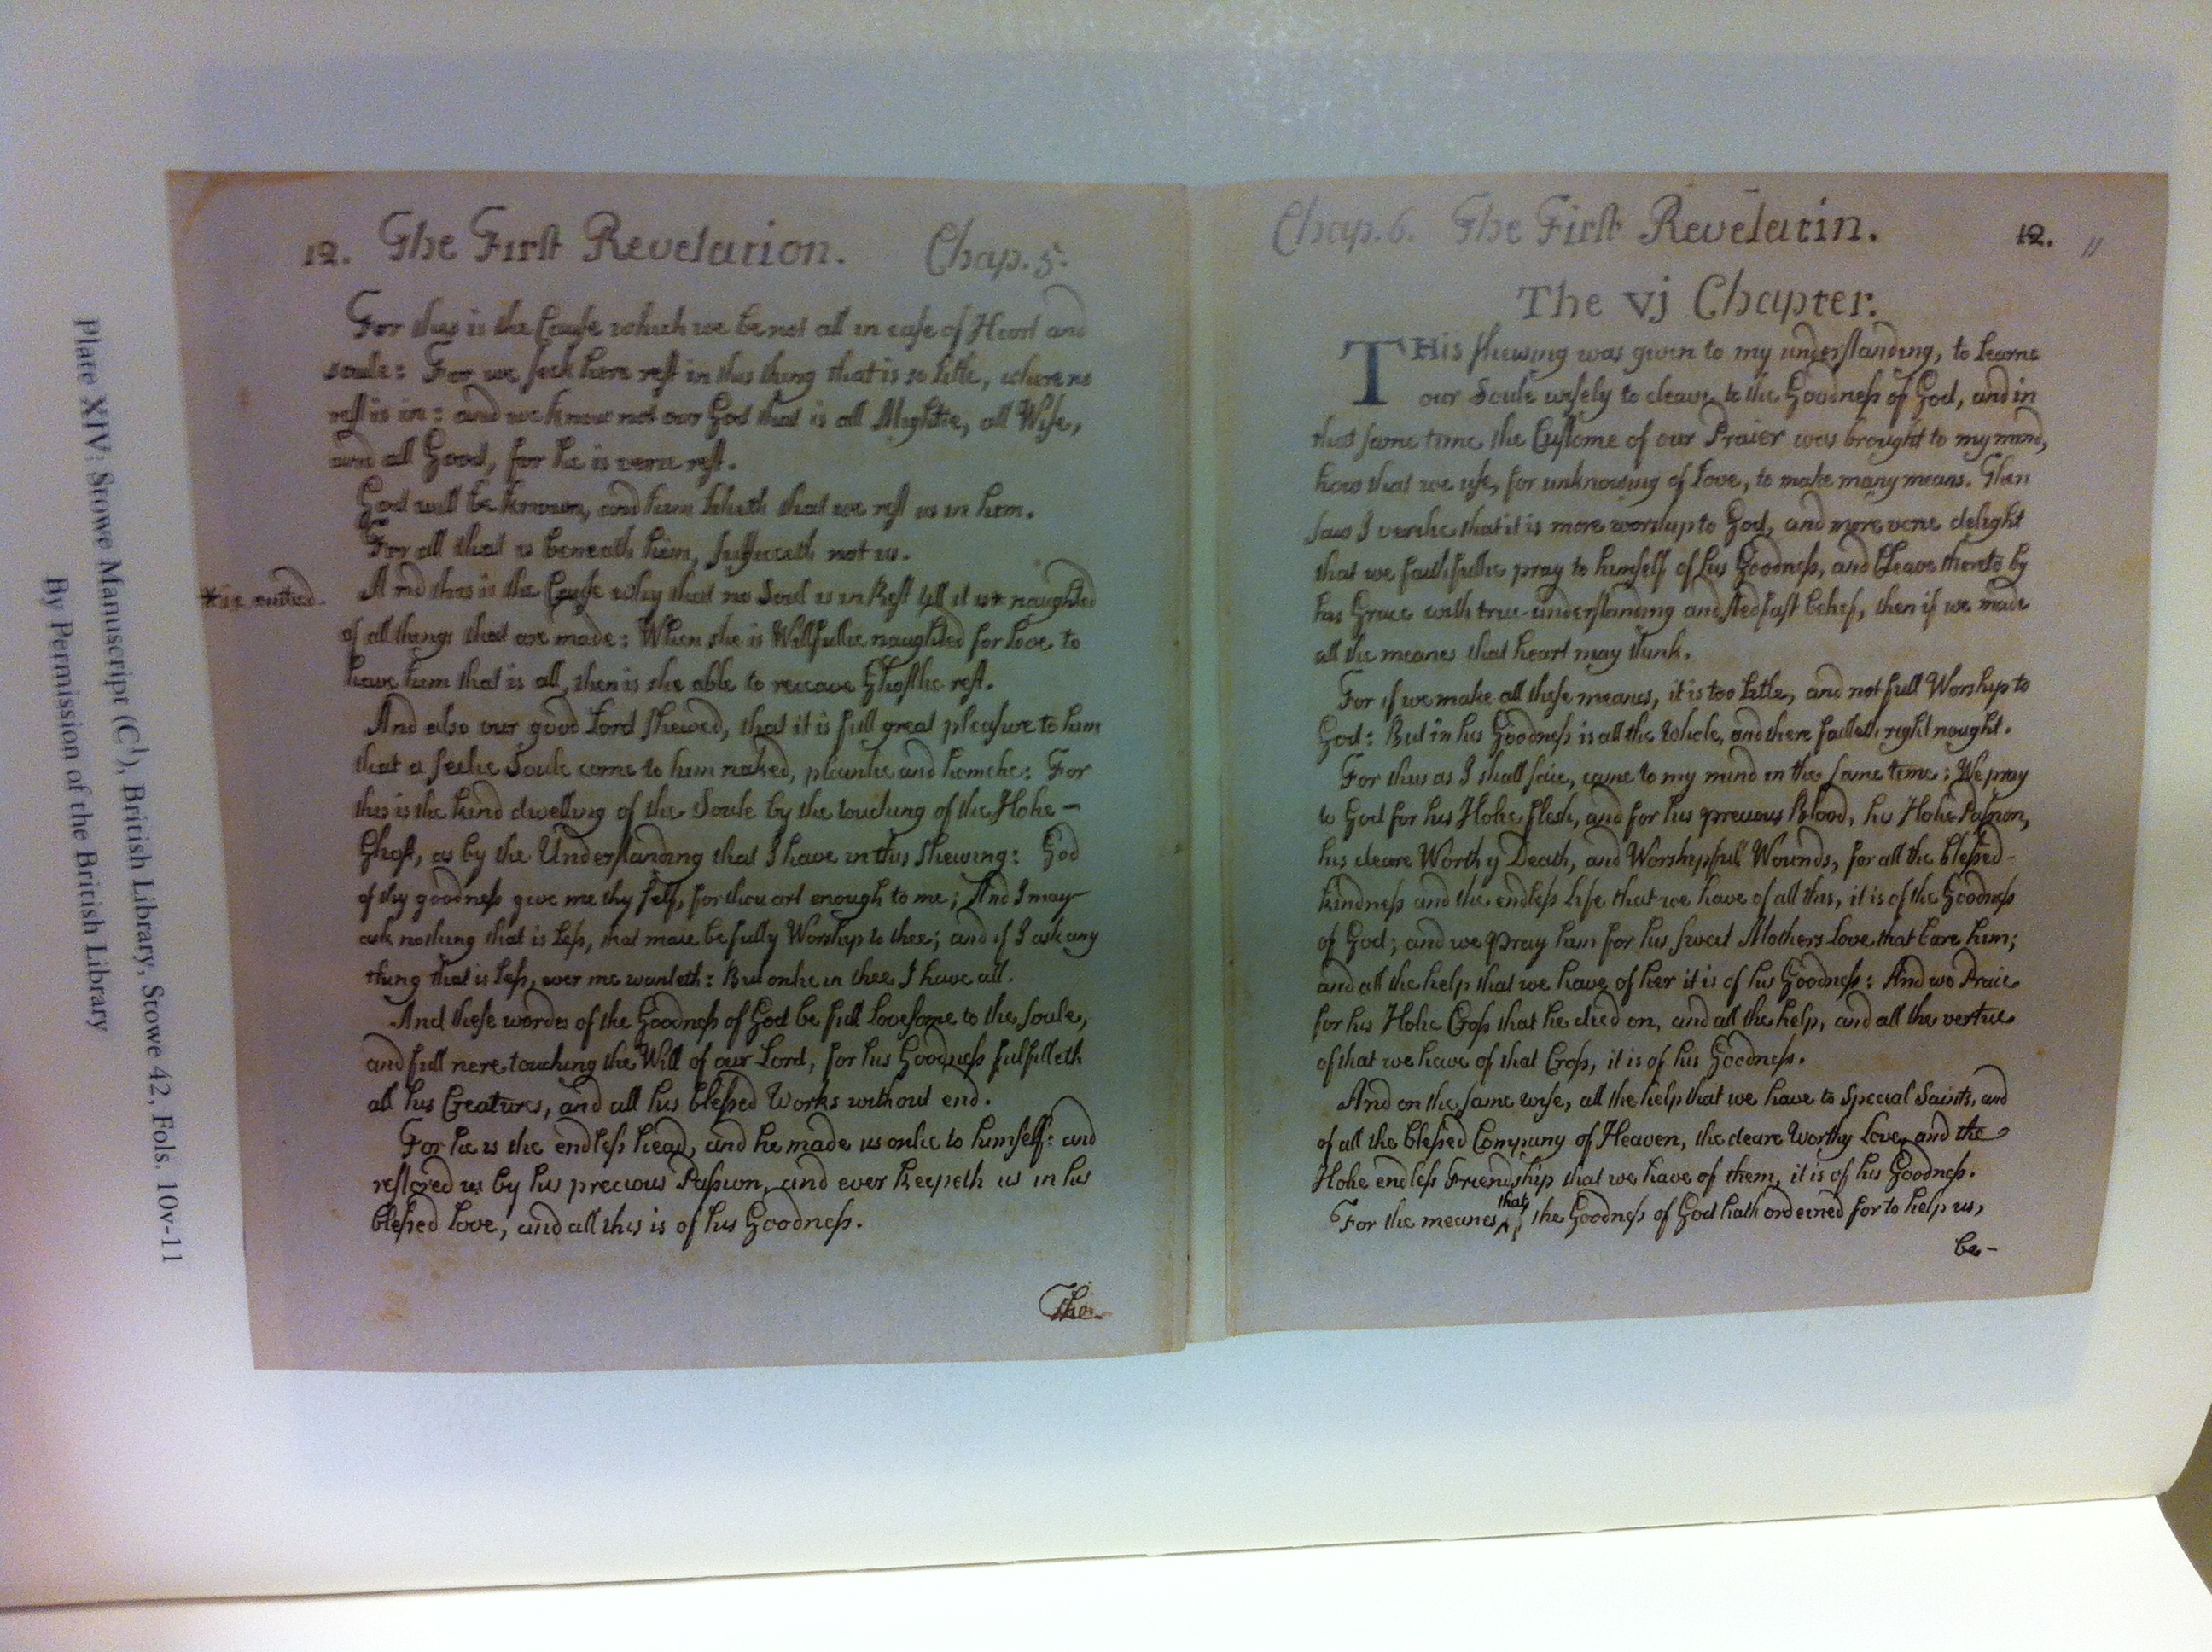 Plate XIV: Stowe Manuscript (C¹), British Library, Stowe 42, Fols. 10v-11
By Permission of the British Library
12. The First Revelation. Chap. 5.
For this is the Cause which we be not all in ease of Heart and
soule: For we seek here rest in this thing that is so litle, where no
rest is in: and we know not our God that is all Mightie, all Wise,
and all Good, for he is verie rest.
God will be known, and him liketh that we rest us in him.
For all that is beneath him, sufficeth not us.
And this is the Cause why that no Soul is in Rest till it is* naughted
*i.e. emtied.
of all things that are made: When she is Willfullie naughted for love, to
have him that is all, then is she able to receave Ghostlie rest.
And also our good Lord shewed, that it is full great pleasure to him
that a seelie Soule come to him naked, plainlie and homelie: For
this is the kind dwelling of the Soule by the touching of the Holie -
Ghost, as by the Understanding that I have in this Shewing: God
of thy goodness give me thy self, for thou art enough to me; And I may
ask nothing that is less, that maie be fully Worship to thee; and if I ask any
thing that is less, ever me wanteth: But onlie in thee I have all.
And these wordes of the Goodness of God be full lovesome to the soule,
and full nere touching the Will of our Lord, for his Goodness fulfilleth
all his Creatures, and all his blessed Works without end.
For he is the endless head, and he made us onlie to himself: and
restored us by his precious Passion, and ever keepeth us in his
blessed love, and all this is of his Goodness.
The
Chap. 6. The First Revelatin. 12. 11
The vj Chapter.
THis shewing was given to my understanding, to learne
our Soule wisely to cleave to the Goodness of God, and in
that same time the Custome of our Praier was brought to my mind,
how that we use, for unknowing of Love, to make many means. Then
saw I verilie that it is more worship to God, and more verie delight
that we faithfullie pray to himself of his Goodness, and Cleave thereto by
his Grace with true understanding and stedfast belief, then if we made
all the meanes that heart may think.
For if we make all these meanes, it is too litle, and not full Worship to
God: But in his Goodness is all the Whole, and there faileth right nought.
For thus as I shall saie, came to my mind in the same time: We pray
to God for his Holie flesh, and for his precious Blood, his Holie Passion,
his deare Worthy Death, and Worshipfull Wounds, for all the blessed -
kindness and the endless life that we have of all this, it is of the Goodness
of God; and we Pray him for his sweet Mothers Love that bare him;
and all the help that we have of her it is of his Goodness: And we Praie
for his Holie Cross that he died on, and all the help, and all the vertue
of that we have of that Cross, it is of his Goodness.
And on the same wise, all the help that we have to Special Saints, and
of all the blessed Company of Heaven, the deare Worthy Love, and the
Holie endless Friendship that we have of them, it is of his Goodness.
For the meanes that the Goodness of God hath ordeined for to help us,
be-